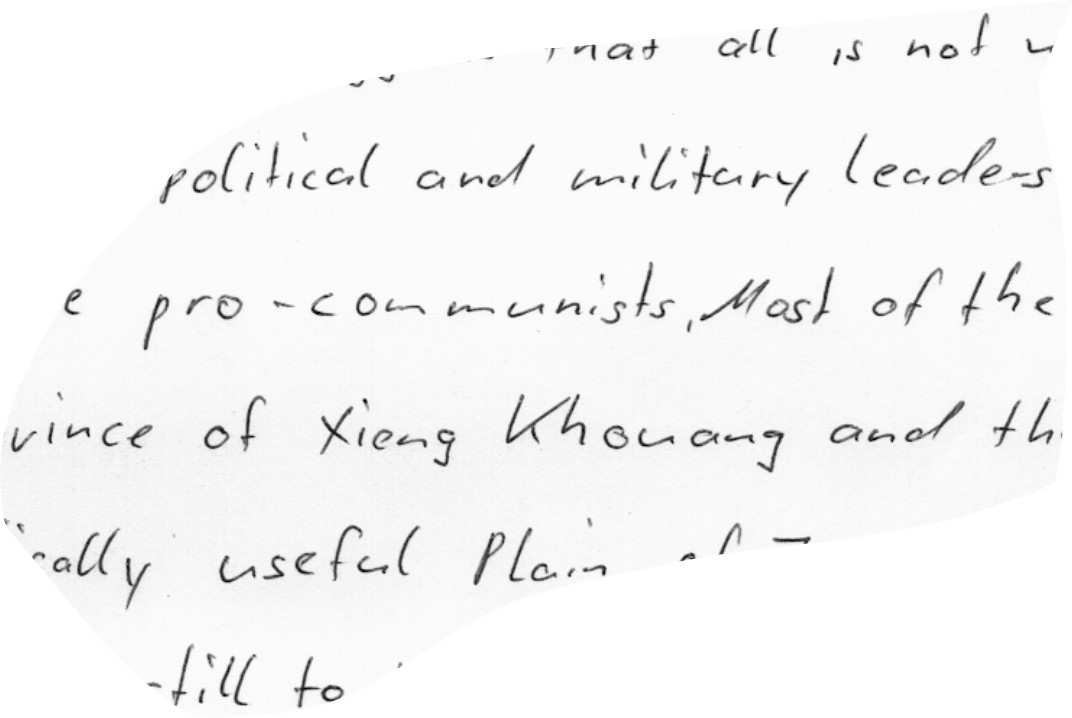 that all is not
political and military leaders
pro-communists. Most of the
vince of Xieng Khouang and th
ically useful Plain of
till to